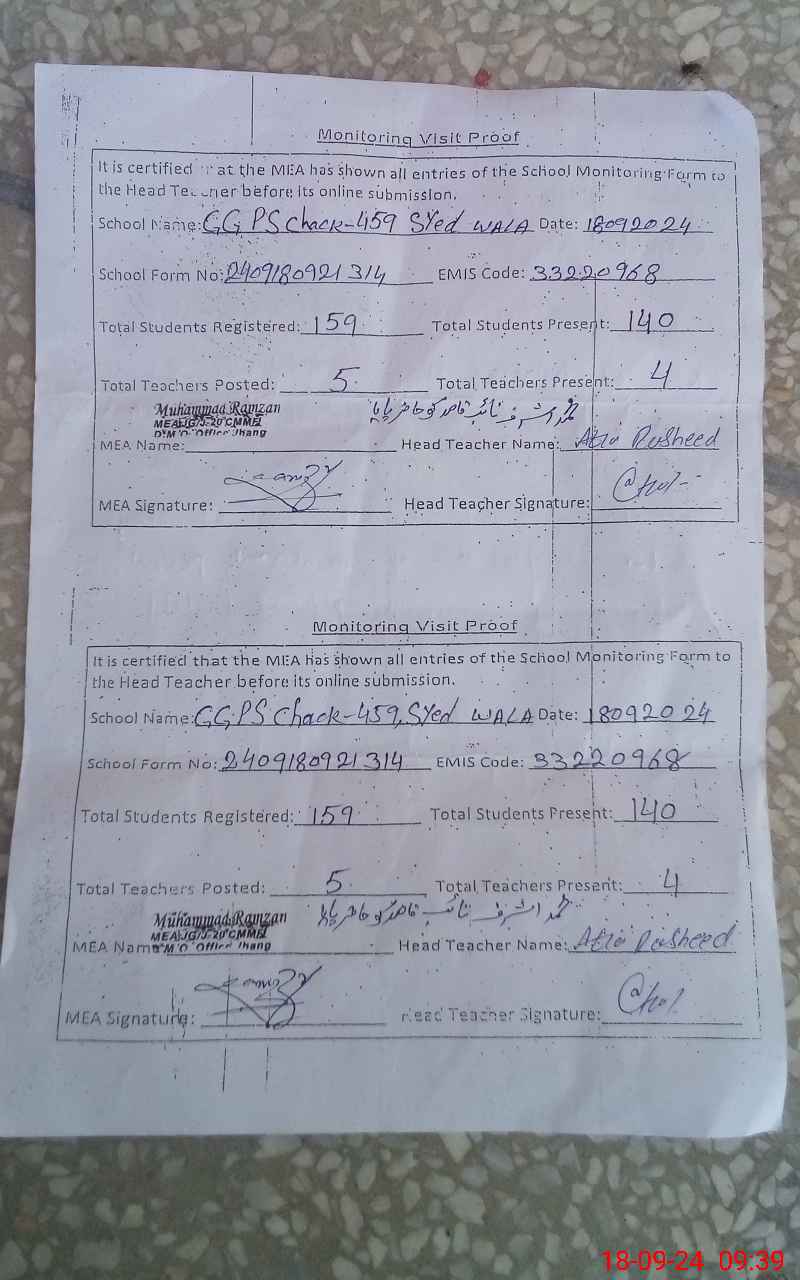 Monitoring Visit Proof
It is certified that the MEA has shown all entries of the School Monitoring Form to
the Head Teacher before its online submission.
School Name: GGPS Chack-459 Syed WALA Date: 18092024
School Form No: 2409180921314 EMIS Code: 33220968
Total Students Registered: 159 Total Students Present: 140
Total Teachers Posted: 5 Total Teachers Present: 4
محمد اشرف نائب قاصد کو حاضر پایا
Muhammad Ramzan
D.M.O. Office Jhang
MEA Name: Head Teacher Name: Atia Rasheed
MEA Signature: Head Teacher Signature:
Monitoring Visit Proof
It is certified that the MEA has shown all entries of the School Monitoring Form to
the Head Teacher before its online submission.
School Name: GGPS Chack-459, Syed WALA Date: 18092024
School Form No: 2409180921314 EMIS Code: 33220968
Total Students Registered: 159 Total Students Present: 140
Total Teachers Posted: 5 Total Teachers Present: 4
محمد اشرف نائب قاصد کو حاضر پایا
Muhammad Ramzan
D.M.O. Office Jhang
MEA Name Head Teacher Name: Atia Rasheed
MEA Signature: Head Teacher Signature:
18-09-24 09:39